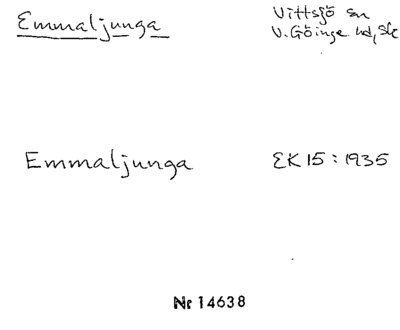 Emmaljunga
Vittsjö sn
V. Göinge hd, Sk
Emmaljunga EK 15 : 1935
Nr 14638